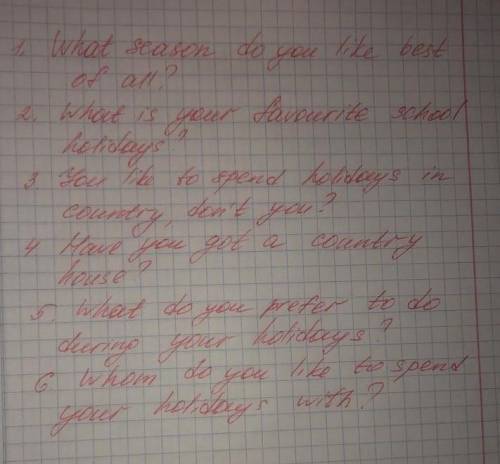 1. What season do you like best
of all?
2. What is your favourite school
holidays?
3. You like to spend holidays in
country, don't you?
4 Have you got a country
house?
5. What do you prefer to do
during your holidays?
6 Whom do you like to spend
your holidays with?